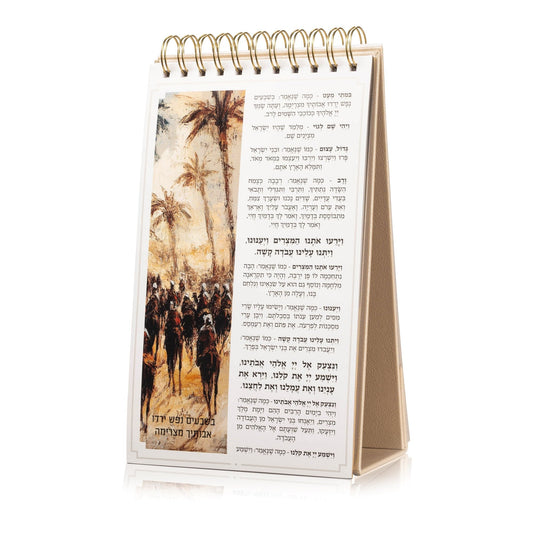 במתי מעט - כמה שנאמר: בשבעים
נפש ירדו אבותיך מצרימה, ועתה שמך
יי אלהיך ככוכבי השמים לרב.
ויהי שם לגוי - מלמד שהיו ישראל
מצינים שם.
גדול, עצום - כמו שנאמר: ובני ישראל
פרו וישרצו וירבו ויעצמו במאד מאד,
ותמלא הארץ אתם.
ורב - כמה שנאמר: רבבה כצמח
השדה נתתיך, ותרבי ותגדלי ותבאי
בעדי עדיים, שדים נכנו ושערך צמח,
ואת ערם ועריה. ואעבר עליך ואראך
מתבוססת בדמיך, ואמר לך בדמיך חיי,
ואמר לך בדמיך חיי.
וירעו אתנו המצרים ויענונו,
ויתנו עלינו עבדה קשה.
וירעו אתנו המצרים - כמו שנאמר: הבה
נתחכמה לו פן ירבה, והיה כי תקראנה
מלחמה ונוסף גם הוא על שנאינו ונלחם
בנו, ועלה מן הארץ.
ויענונו - כמה שנאמר: וישימו עליו שרי
מסים למען ענתו בסבלתם. ויבן ערי
מסכנות לפרעה, את פתם ואת רעמסס.
ויתנו עלינו עבדה קשה - כמה שנאמר:
ויעבדו מצרים את בני ישראל בפרך.
ונצעק אל יי אלהי אבתינו,
וישמע יי את קלנו, וירא את
ענינו ואת עמלנו ואת לחצנו.
ונצעק אל יי אלהי אבתינו - כמה שנאמר:
ויהי בימים הרבים ההם וימת מלך
מצרים, ויאנחו בני ישראל מן העבודה
ויזעקו, ותעל שועתם אל האלהים מן
העבדה.
וישמע יי את קלנו - כמה שנאמר: וישמע
בשבעים נפש ירדו
אבותיך מצרימה